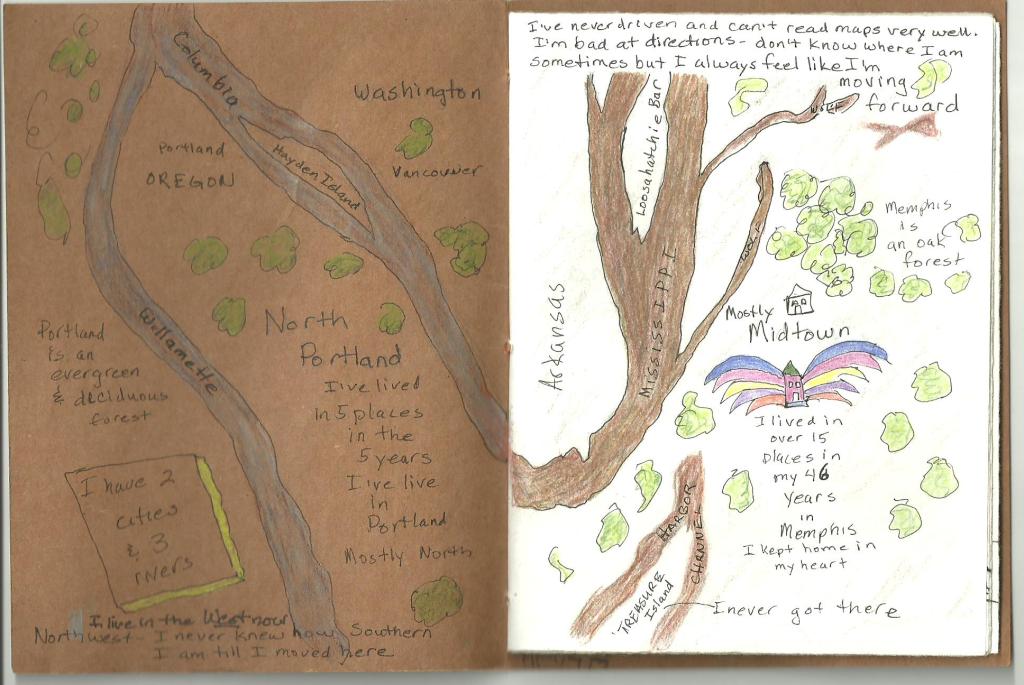 Columbia
Washington
Portland
OREGON
Hayden Island
Vancouver
Willamette
Portland
is an
evergreen
& deciduous
forest
North
Portland
I've lived
in 5 places
in the
5 years
I've live
in
Portland
Mostly North
I have 2
cities
& 3
rivers
I live in the West now
Northwest - I never knew how Southern
I am till I moved here
I've never driven and can't read maps very well.
I'm bad at directions - don't know where I am
sometimes but I always feel like I'm
moving
forward
WOLF
Loosahatchie Bar
MISSISSIPPI
Arkansas
Memphis
is
an oak
forest
Mostly
Midtown
I lived in
over 15
places in
my 46
years
in
Memphis
I kept home in
my heart
HARBOR
CHANNEL
TREASURE
Island
I never got there